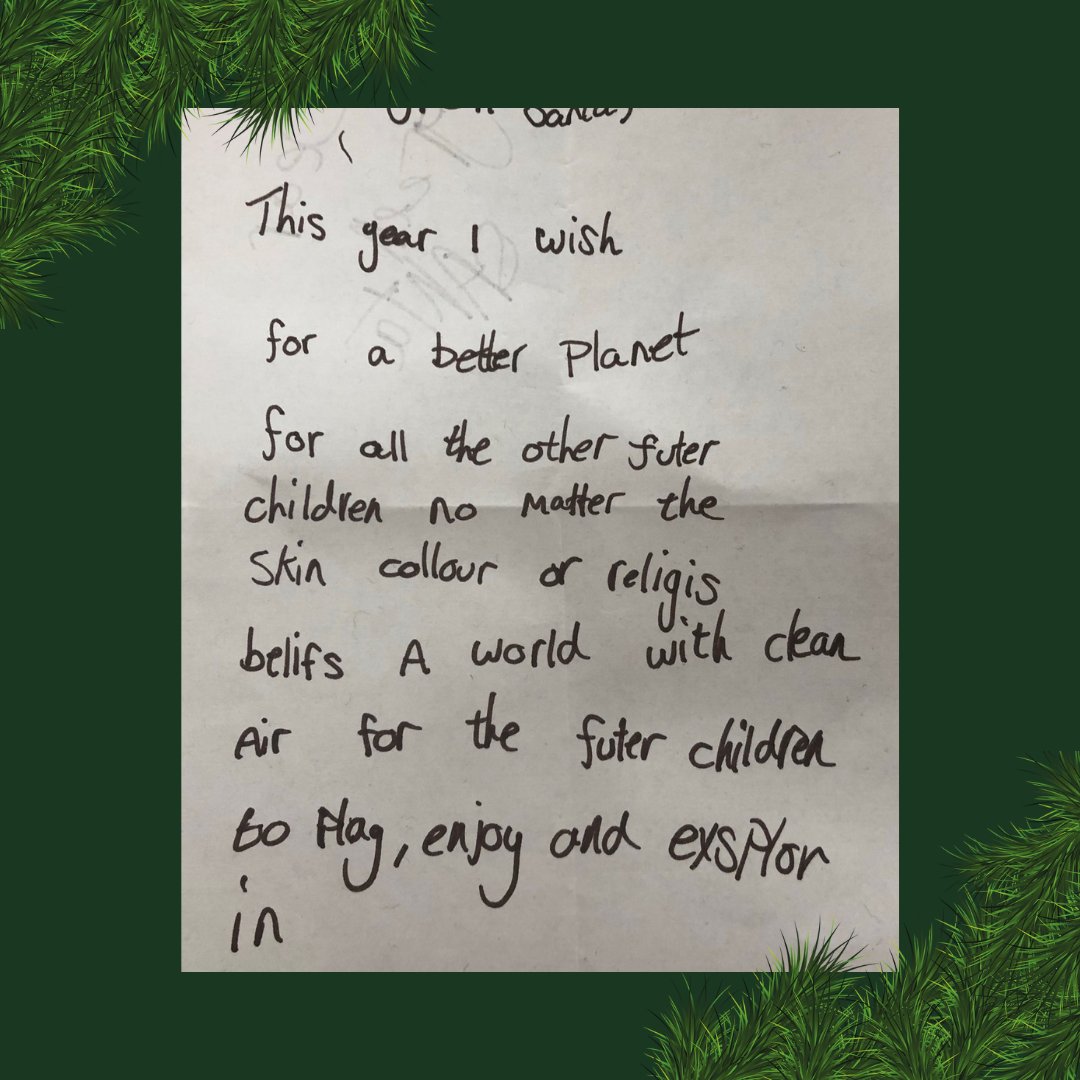 Santa,
This year I wish
for a better Planet
for all the other futer
children no matter the
skin collour or religis
belifs A world with clean
Air for the futer children
to Play, enjoy and exsplor
in